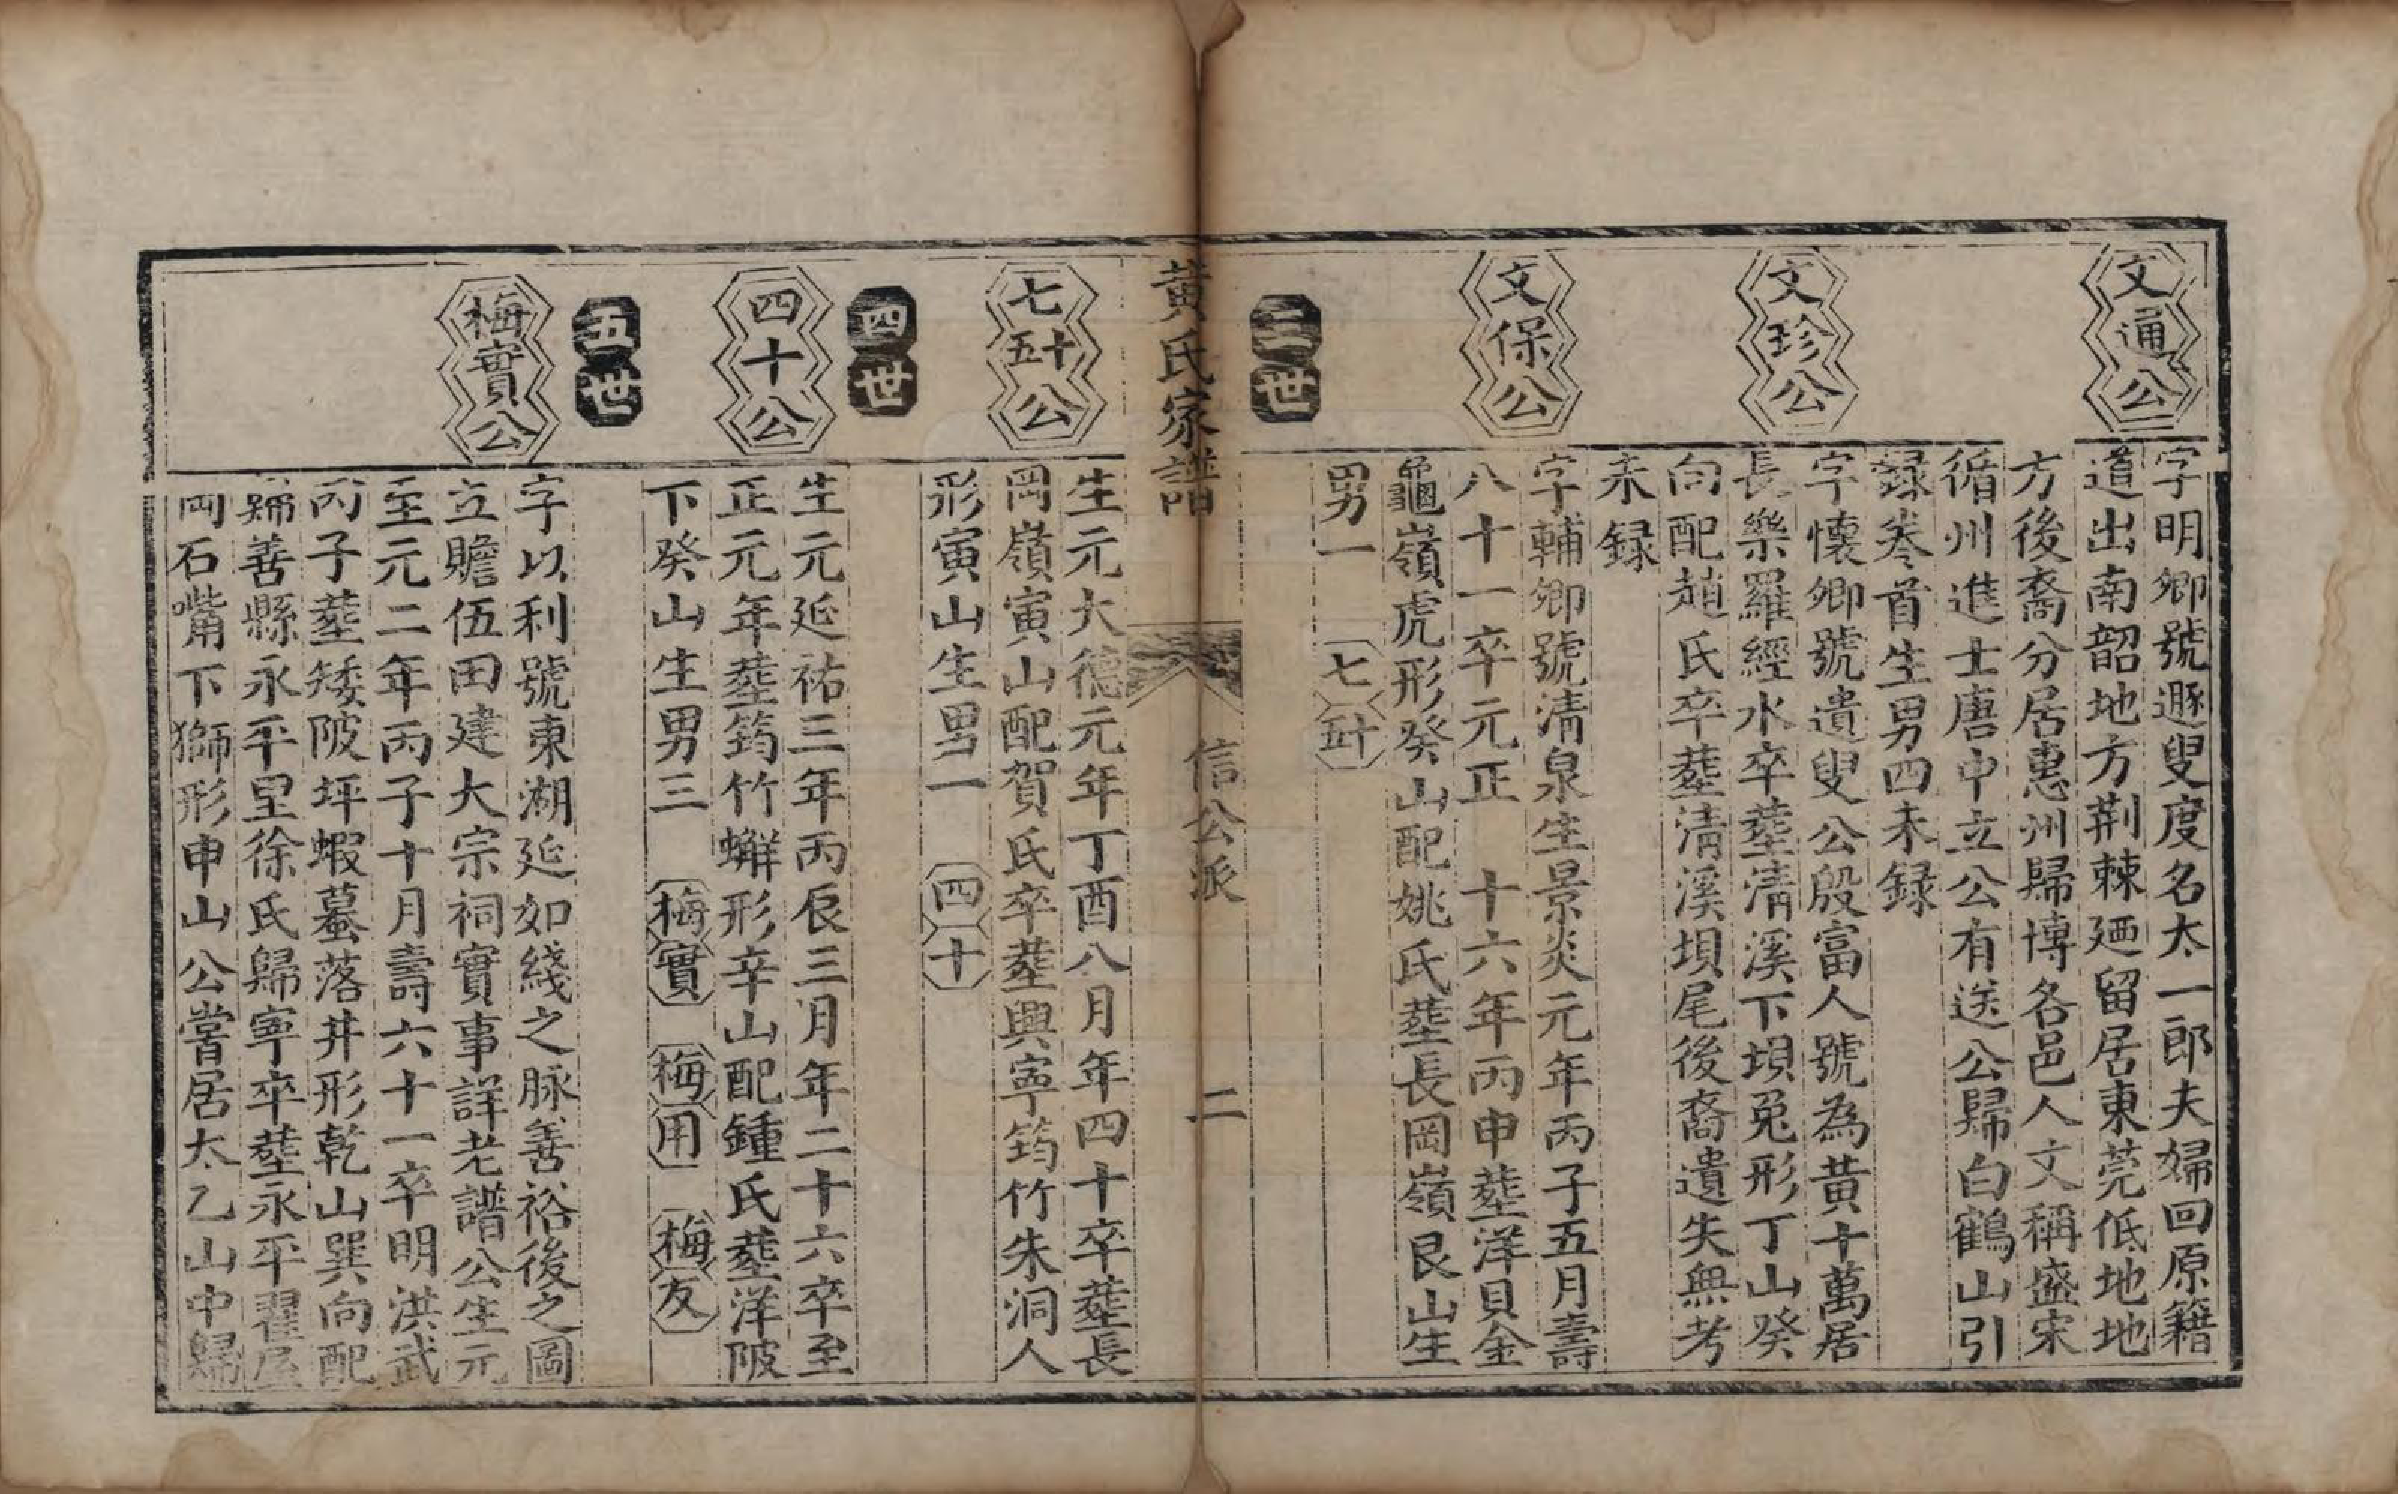 文通公
字明卿號遯叟度名太一郎夫婦回原籍
道出南韶地方荆棘廼留居東莞低地地
方後裔分居惠州歸博各邑人文稱盛宋
循州進士唐中立公有送公歸白鶴山引
録卷首生男四未録
文珍公
字懷卿號遺叟公殷富人號為黃十萬居
長樂羅經水卒塟清溪下垻兔形丁山癸
向配趙氏卒塟清溪垻尾後裔遺失無考
未録
文保公
字輔卿號清泉生景炎元年丙子五月壽
八十一卒元正 十六年丙申塟洋貝金
龜嶺虎形癸山配姚氏塟長岡嶺艮山生
男一 七五十
三世
黃氏家譜 信公派 二
七五十公
生元大德元年丁酉八月年四十卒塟長
岡嶺寅山配賀氏卒塟興寧筠竹朱洞人
形寅山生男一 四十
四世
四十公
生元延祐三年丙辰三月年二十六卒至
正元年塟筠竹蠏形辛山配鍾氏塟洋陂
下癸山生男三 梅實 梅用 梅友
五世
梅實公
字以利號東湖延如綫之脉善裕後之圖
立贍伍田建大宗祠實事詳老譜公生元
至元二年丙子十月壽六十一卒明洪武
丙子塟矮陂坪蝦蟇落井形乾山巽向配
歸善縣永平里徐氏歸寧卒塟永平翟屋
岡石嘴下獅形申山公嘗居太乙山中歸